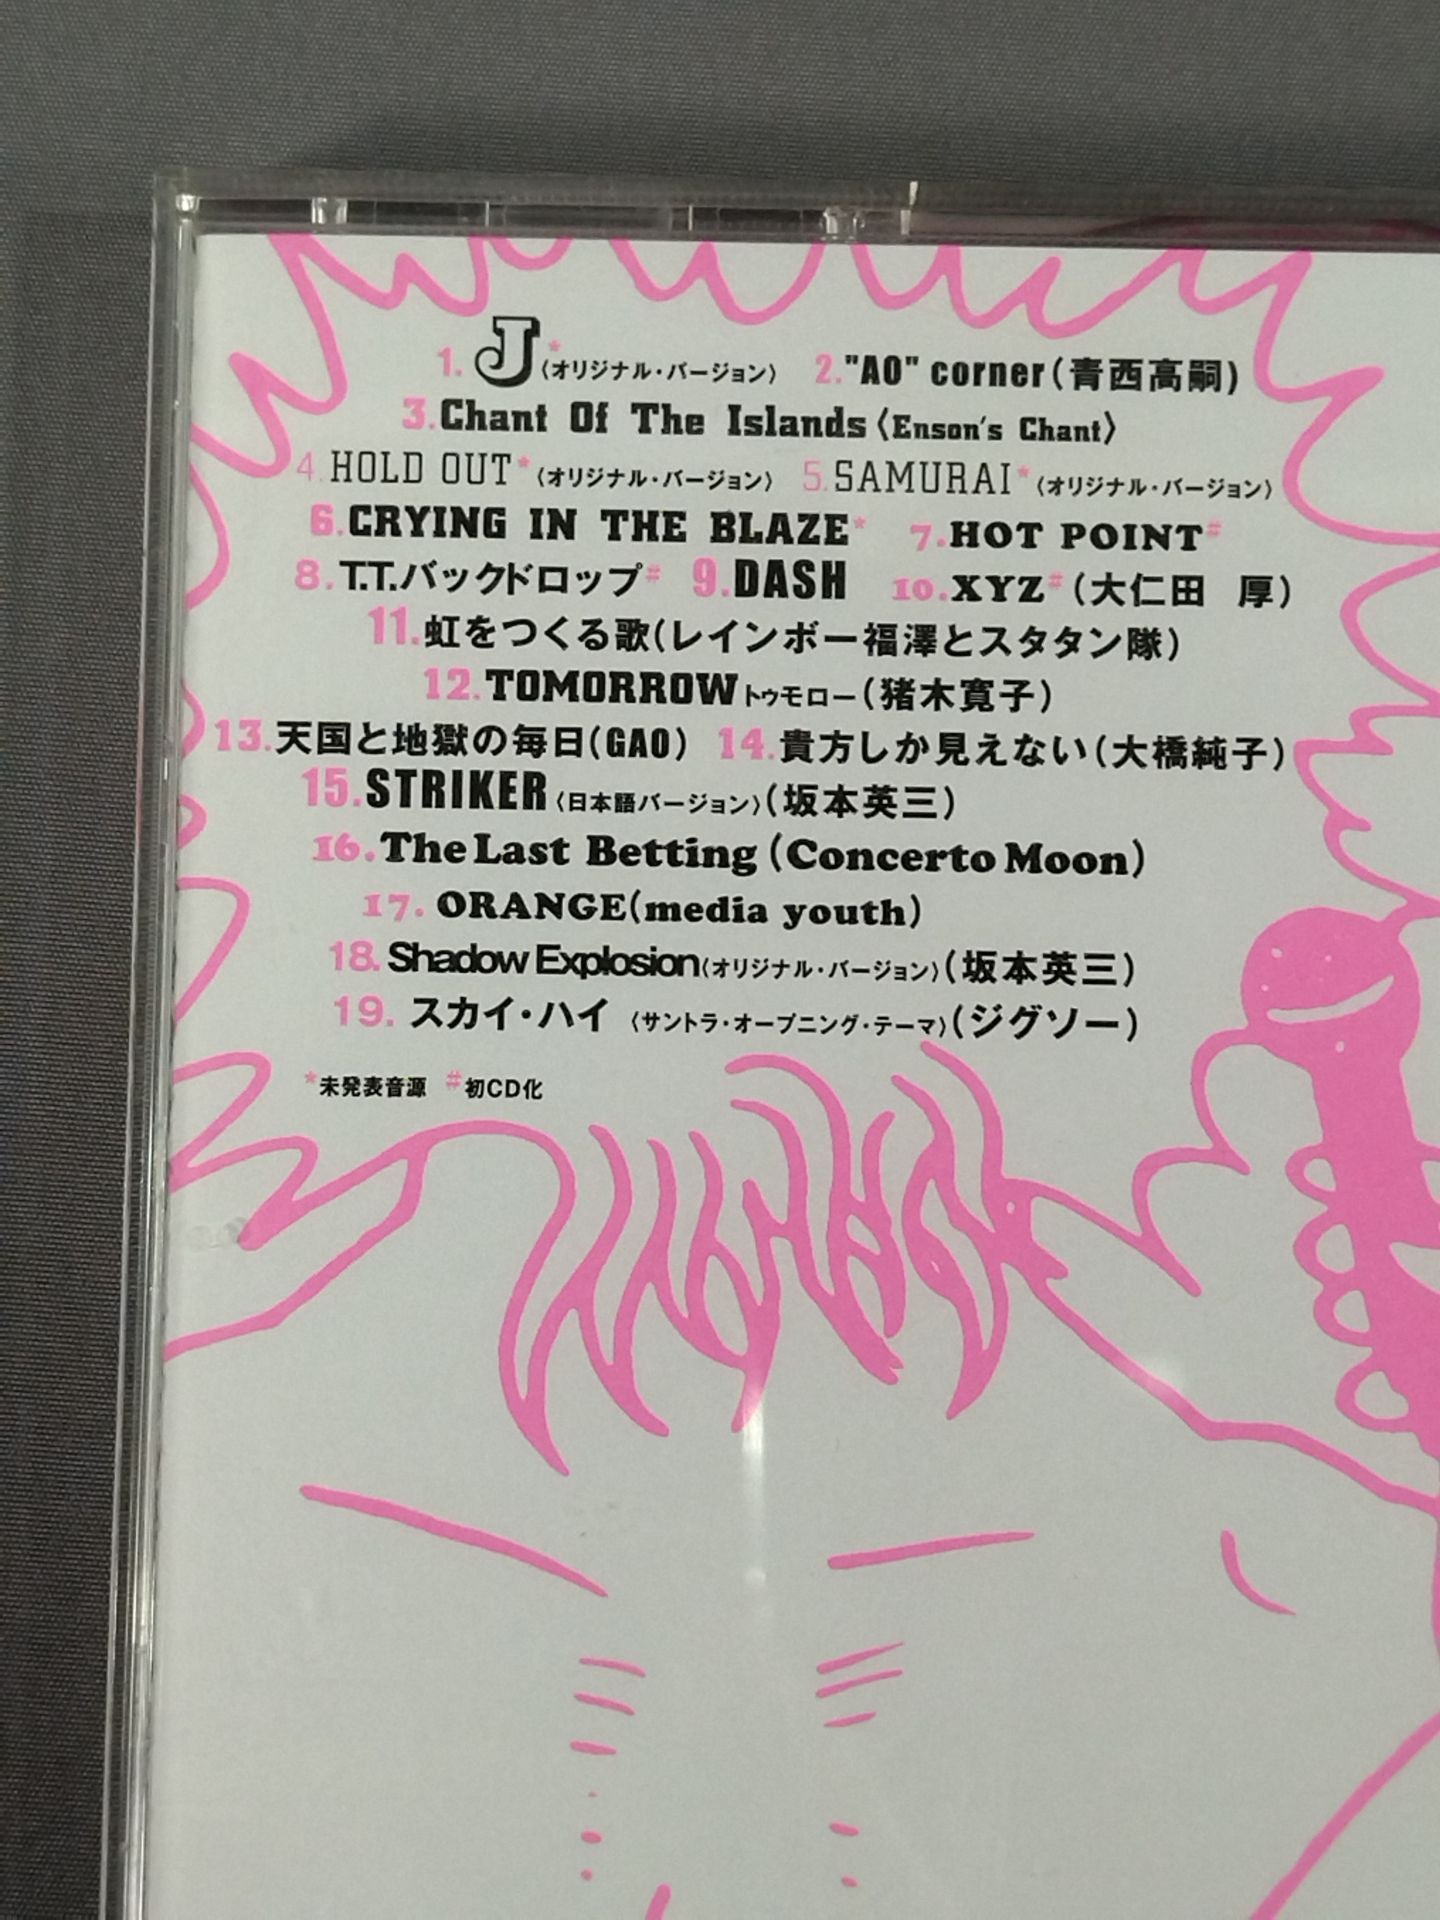 1. J*〈オリジナル・バージョン〉 2."AO" corner(青西高嗣)
3.Chant Of The Islands〈Enson's Chant〉
4.HOLD OUT*〈オリジナル・バージョン〉 5.SAMURAI*〈オリジナル・バージョン〉
6.CRYING IN THE BLAZE* 7.HOT POINT#
8.T.T.バックドロップ# 9.DASH 10.XYZ#(大仁田 厚)
11.虹をつくる歌(レインボー福澤とスタタン隊)
12.TOMORROWトゥモロー(猪木寛子)
13.天国と地獄の毎日(GAO) 14.貴方しか見えない(大橋純子)
15.STRIKER〈日本語バージョン〉(坂本英三)
16.The Last Betting(Concerto Moon)
17. ORANGE(media youth)
18.Shadow Explosion〈オリジナル・バージョン〉(坂本英三)
19. スカイ・ハイ 〈サントラ・オープニング・テーマ〉(ジグソー)
*未発表音源 #初CD化